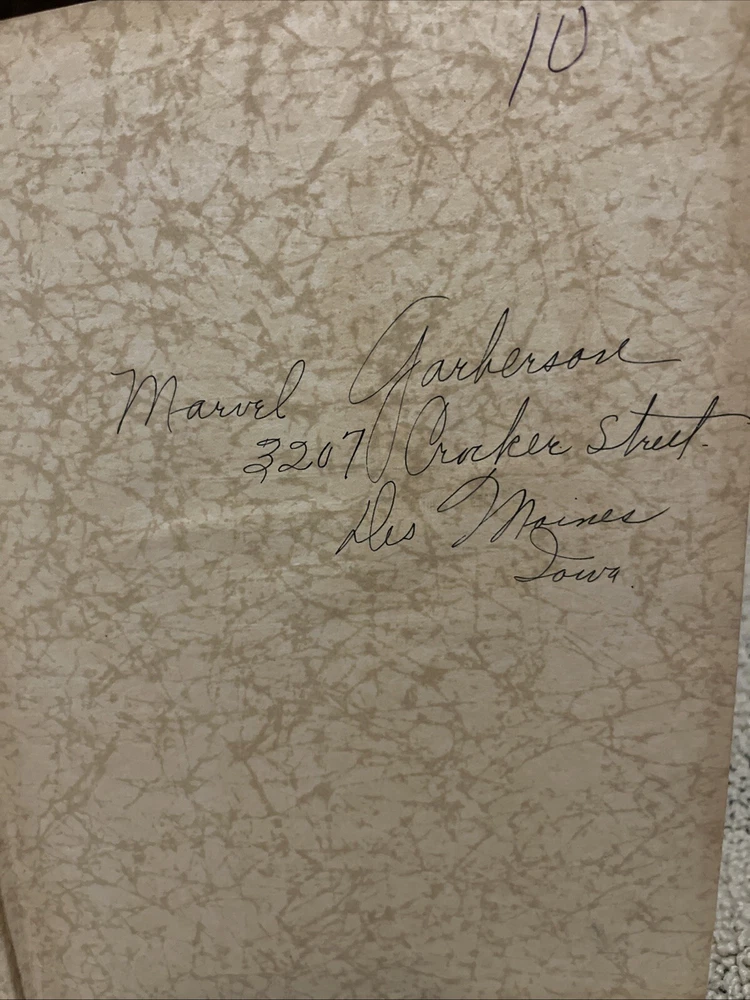 10
Marvel Garberson
3207 Crocker Street.
Des Moines
Iowa.